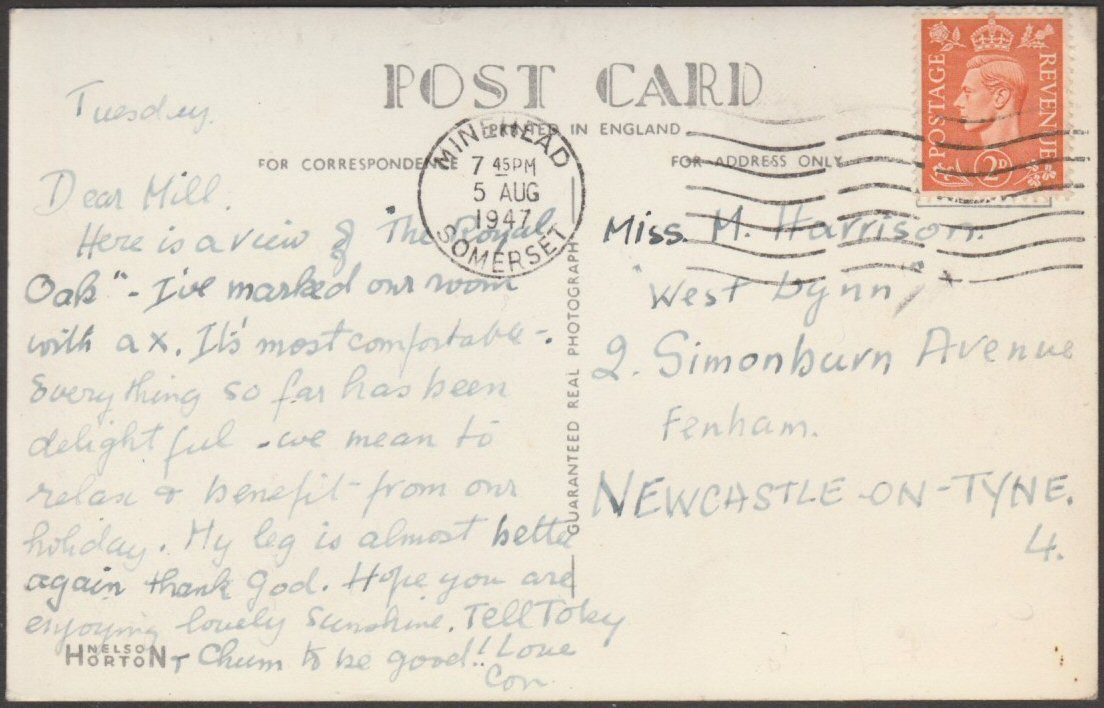 POST CARD
PRINTED IN ENGLAND
FOR CORRESPONDENCE
FOR ADDRESS ONLY
POSTAGE REVENUE
2D
MINEHEAD
7 45PM
5 AUG
1947
SOMERSET
Tuesday.
Dear Mill.
Here is a view of "The Royal
Oak" - I've marked our room
with a x. It's most comfortable -.
Everything so far has been
delightful - we mean to
relax & benefit from our
holiday. My leg is almost better
again thank God. Hope you are
enjoying lovely Sunshine. Tell Toby
+ Chum to be good!! Love
Con
NELSON
HORTON
GUARANTEED REAL PHOTOGRAPH
Miss. M. Harrison.
"West Lynn"
2. Simonburn Avenue
Fenham.
NEWCASTLE-ON-TYNE.
4.